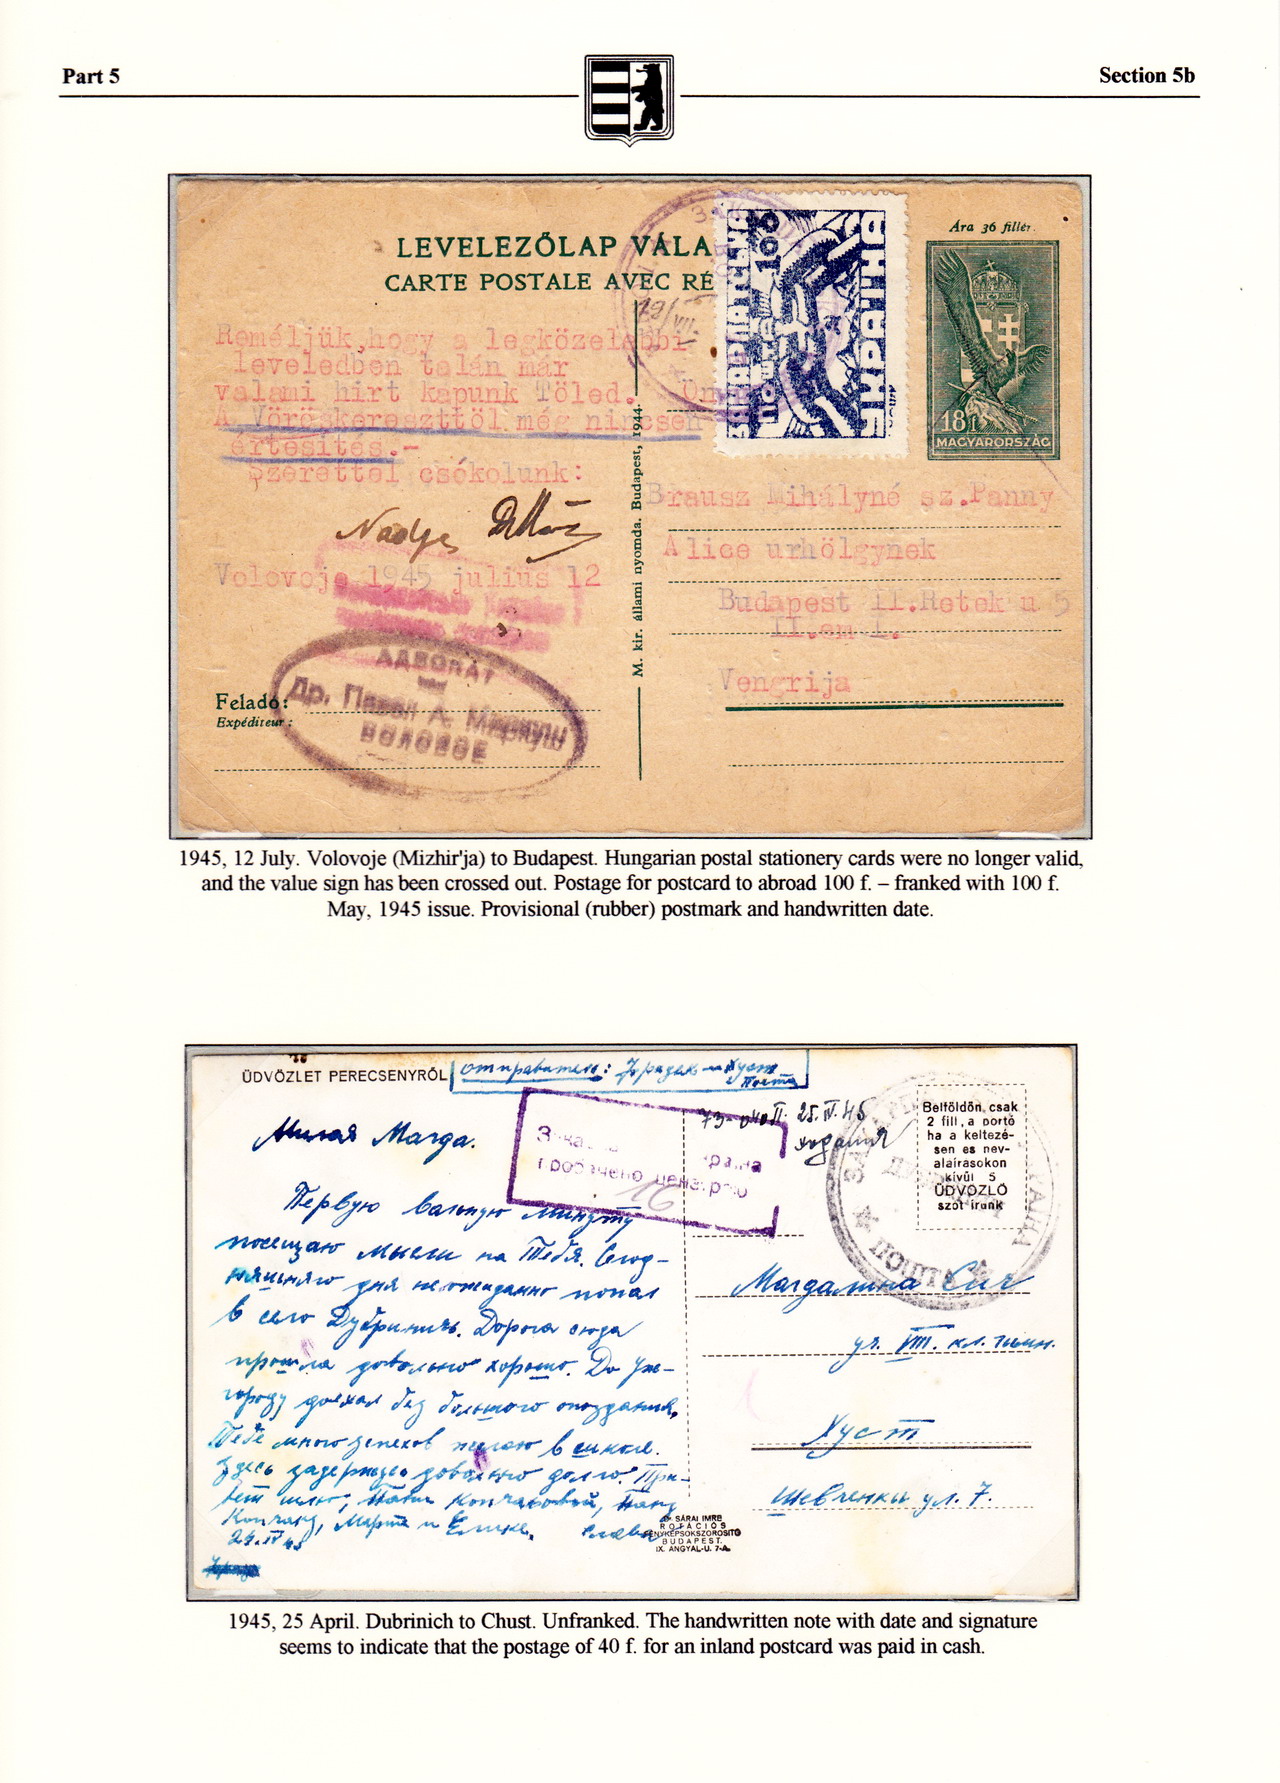 Part 5
Section 5b
LEVELEZŐLAP VÁLA
CARTE POSTALE AVEC RÉ
Ára 36 fillér.
100
ПОШТА
УКРАЇНА
18f
MAGYARORSZÁG
19/VII.
Reméljük,hogy a legközelebbi
leveledben talán már
valami hirt kapunk Töled.
A Vöröskereszttöl még nincsen
értesités.-
Szerettel csókolunk:
Volovoje 1945 julius 12
M. kir. állami nyomda. Budapest, 1944.
Brausz Mihályné sz.Panny
Alice urhölgynek
Budapest II.Retek u 5
II.em 1.
Vengrija
АДВОКАТ
Др. Павел А. Миркуш
ВОЛОВОЕ
Feladó:
Expéditeur:
1945, 12 July. Volovoje (Mizhir'ja) to Budapest. Hungarian postal stationery cards were no longer valid,
and the value sign has been crossed out. Postage for postcard to abroad 100 f. – franked with 100 f.
May, 1945 issue. Provisional (rubber) postmark and handwritten date.
ÜDVÖZLET PERECSENYRŐL
отправитель:
Хуст
Почта
25.IV.45
Belföldön csak
2 fill.a portó
ha a keltezé-
sen es nev-
alairasokon
kivül 5
ÜDVÖZLŐ
szót irunk
ПОШТА
16
Милая Магда.
Первую вольную минуту
посещаю мысли на Тебя. Сегод-
няшняго дня неожиданно попал
в село Дубринич. Дорога сюда
прошла довольно хорошо. До Уж-
городу доехал без большого опоздания.
Тебе много успехов желаю в школе.
Здесь довольно долго. При-
вет
Марта и
24.IV 45
Магдалина Сич
уч. VIII. кл. гимн.
Хуст
Шевченкы ул. 7.
Dr SÁRAI IMRE
ROTÁCIÓS
FÉNYKÉPSOKSZOROSITÓ
BUDAPEST.
IX. ANGYAL-U. 7-A.
1945, 25 April. Dubrinich to Chust. Unfranked. The handwritten note with date and signature
seems to indicate that the postage of 40 f. for an inland postcard was paid in cash.